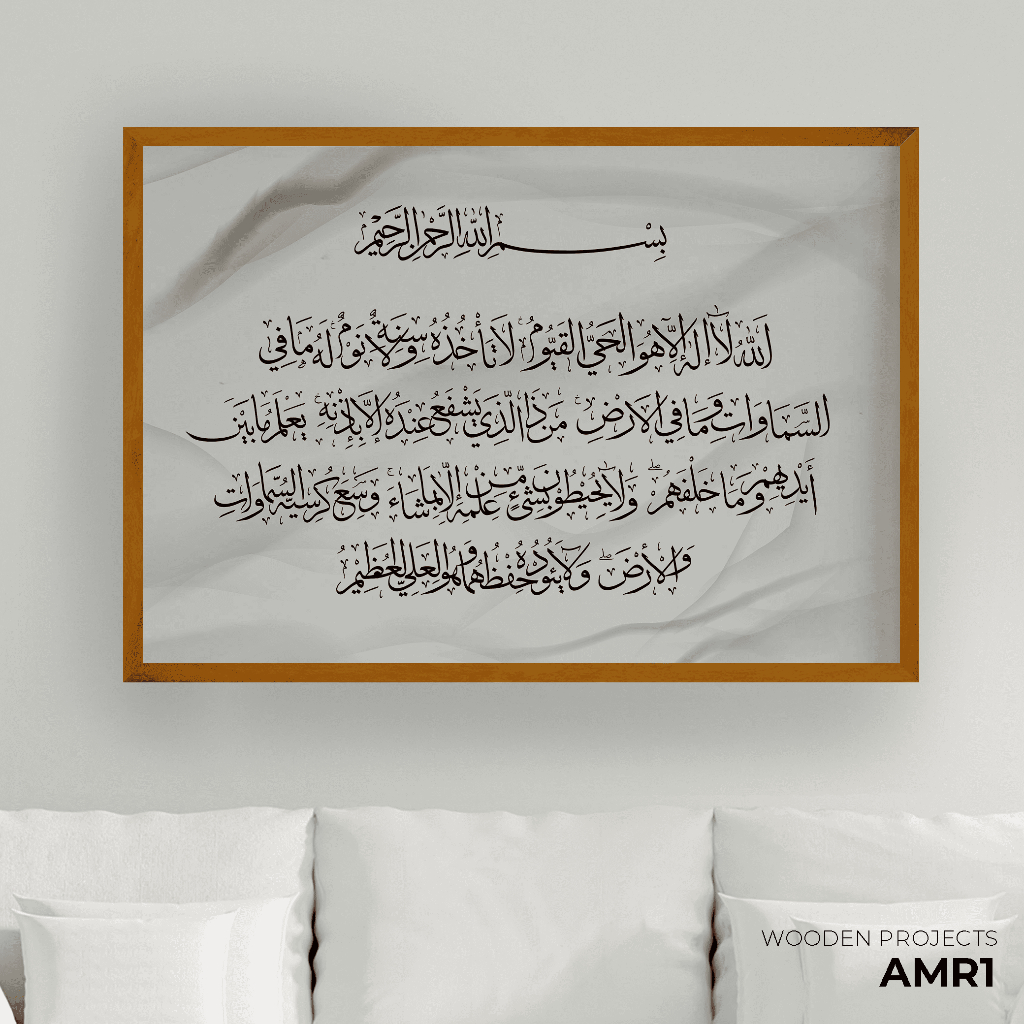 بِسْمِ اللهِ الرَّحْمٰنِ الرَّحِيْمِ
اَللّٰهُ لَآ اِلٰهَ اِلَّا هُوَ الْحَيُّ الْقَيُّوْمُ ۚ لَا تَأْخُذُهٗ سِنَةٌ وَّلَا نَوْمٌ ۚ لَهٗ مَا فِي
السَّمَاوَاتِ وَمَا فِي الْاَرْضِ ۚ مَنْ ذَا الَّذِيْ يَشْفَعُ عِنْدَهٗ اِلَّا بِاِذْنِهٖ ۚ يَعْلَمُ مَا بَيْنَ
أَيْدِيْهِمْ وَمَا خَلْفَهُمْ ۖ وَلَا يُحِيْطُوْنَ بِشَيْءٍ مِّنْ عِلْمِهٖ اِلَّا بِمَا شَاءَ ۚ وَسِعَ كُرْسِيُّهُ السَّمَاوَاتِ
وَالْأَرْضَ ۖ وَلَا يَئُوْدُهٗ حِفْظُهُمَا وَهُوَ الْعَلِيُّ الْعَظِيْمُ
WOODEN PROJECTS
AMR1